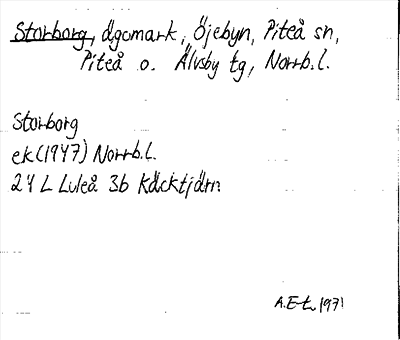 Storborg, ägomark, Öjebyn, Piteå sn,
Piteå o. Älvsby tg, Norrb.l.
Storborg
ek (1947) Norrb.l.
24 L Luleå 3b Käcktjärn
A.E-t 1971